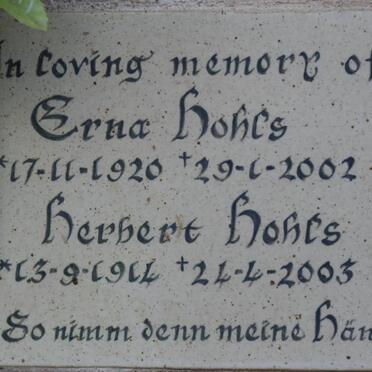 In loving memory of
Erna Hohls
*17-11-1920 †29-1-2002
Herbert Hohls
*13-9-1914 †24-4-2003
So nimm denn meine Hän